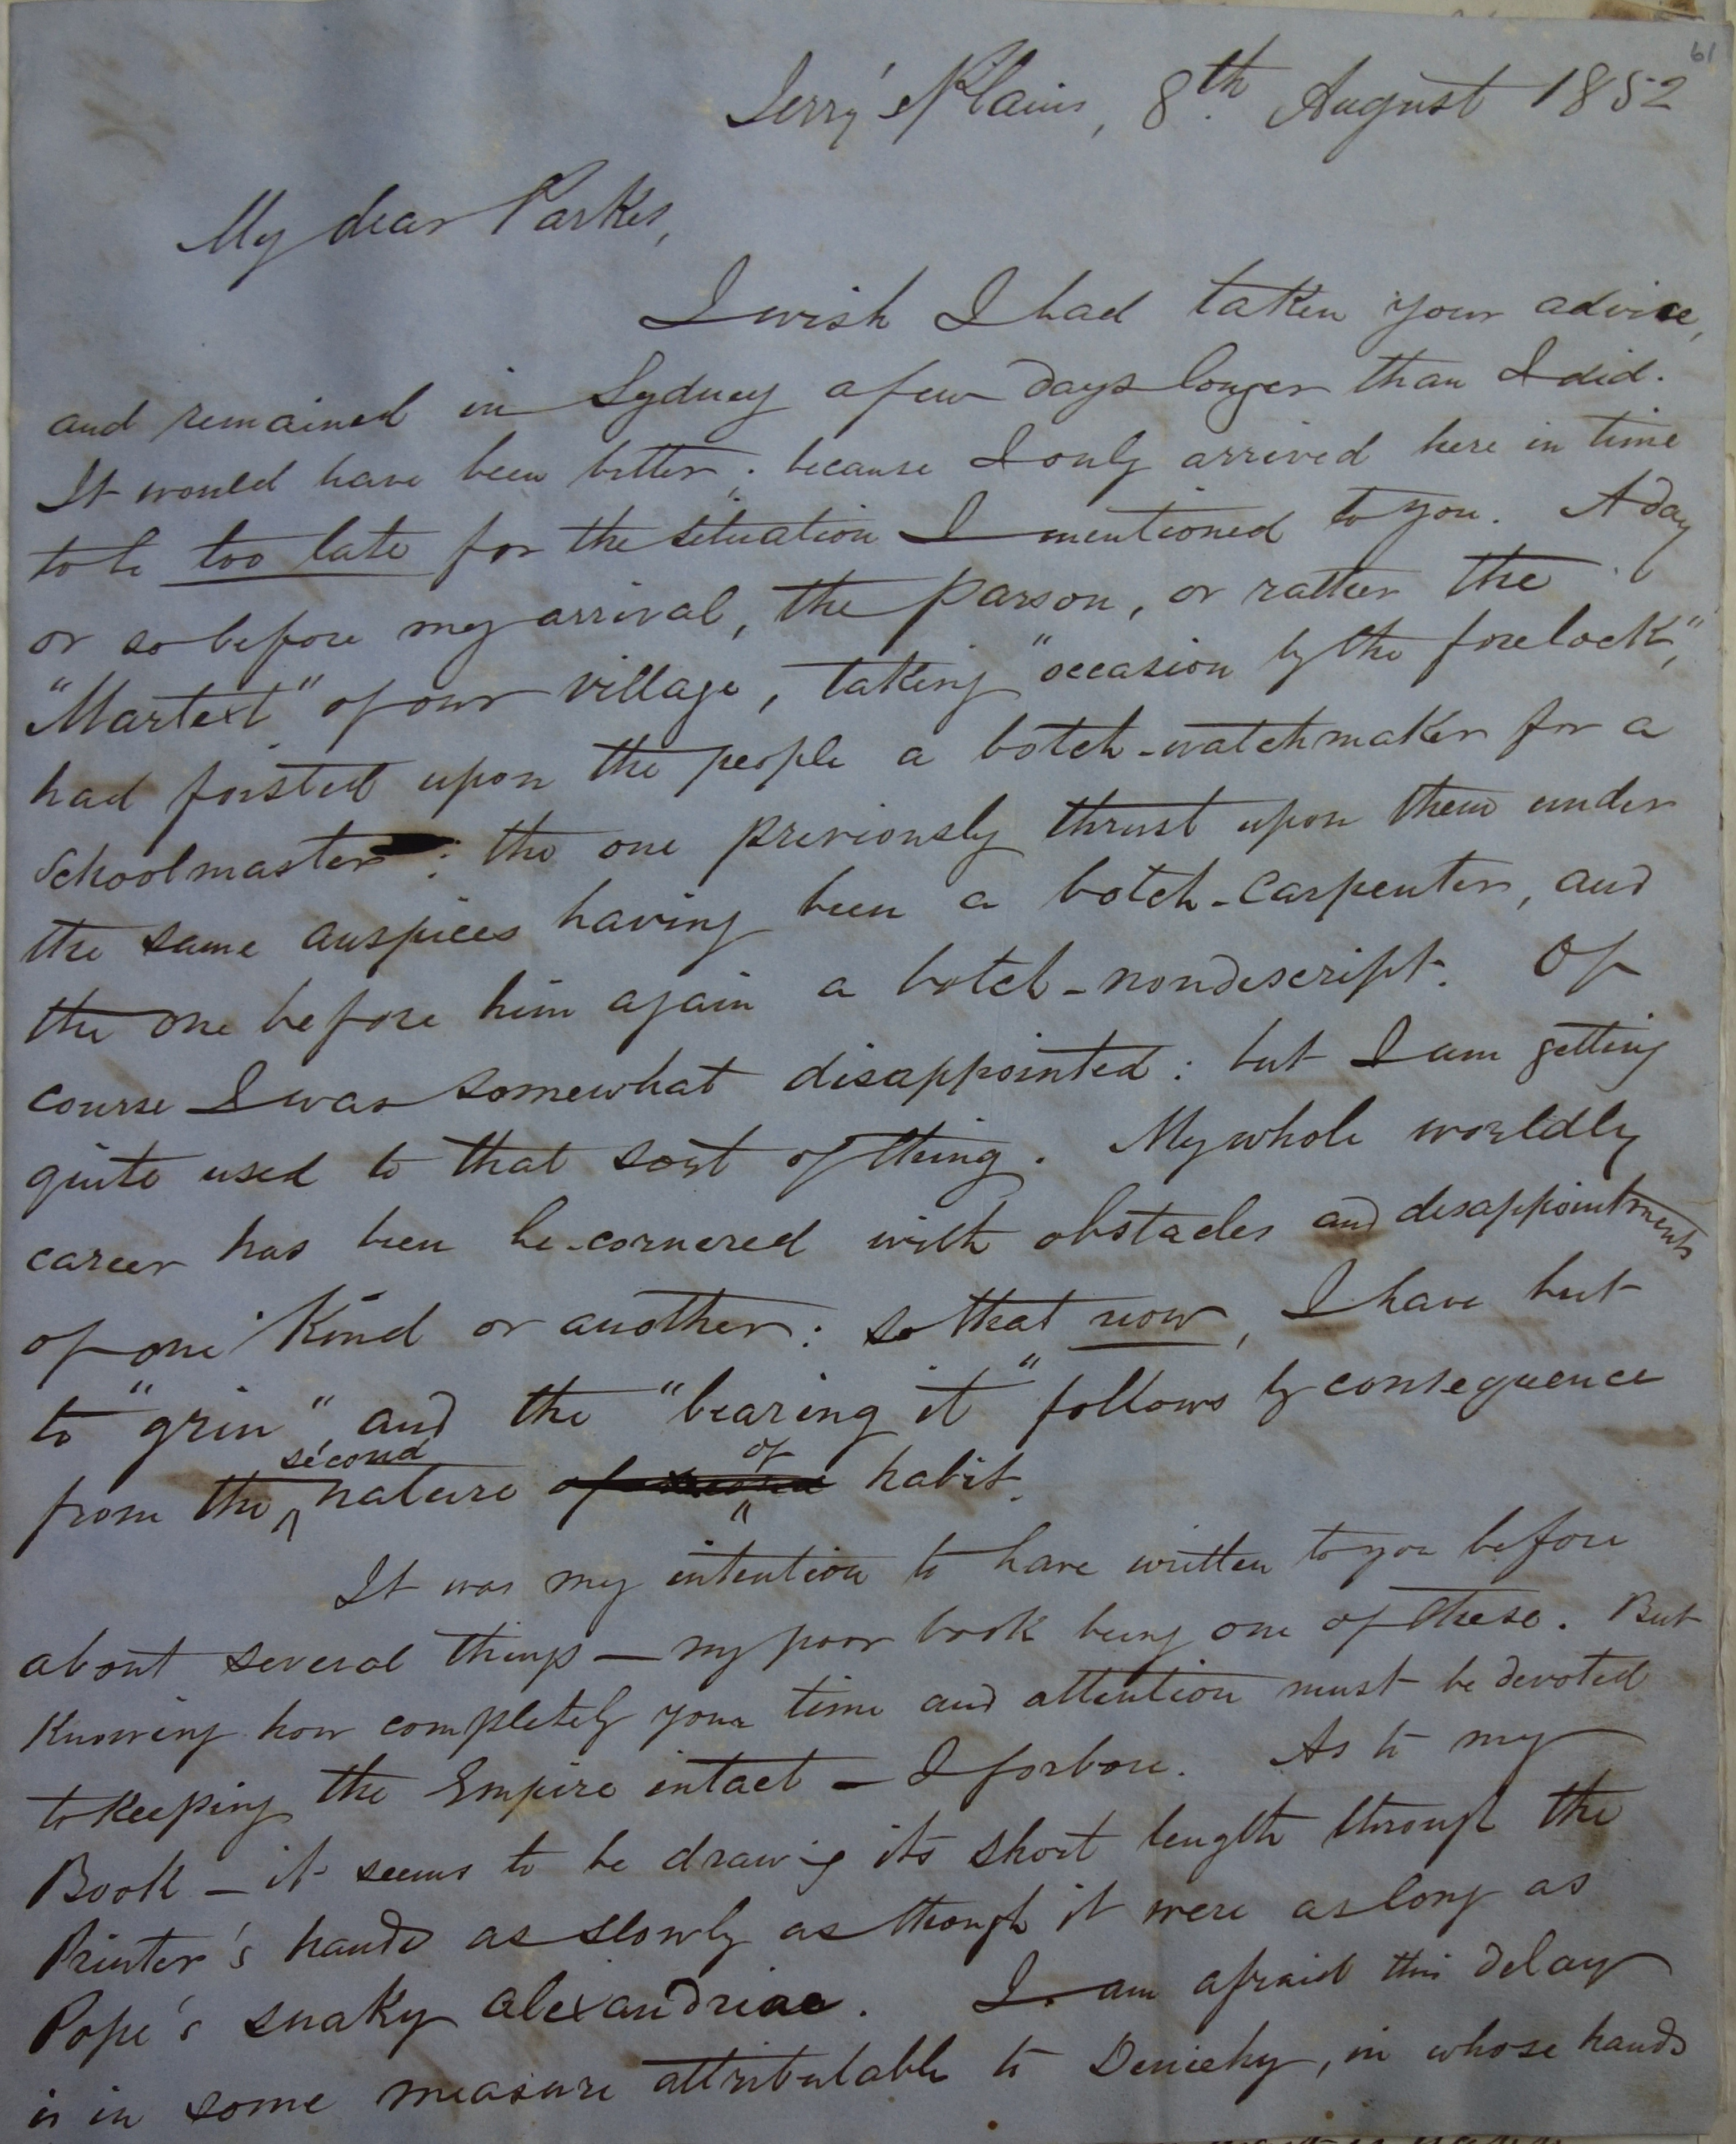 61
Jerry's Plains, 8th August 1852
My dear Parkes,
I wish I had taken your advice,
and remained in Sydney a few days longer than I did.
It would have been better; because I only arrived here in time
to be too late for the situation I mentioned to you. A day
or so before my arrival, the parson, or rather the
"Martext" of our village, taking "occasion by the forelock",
had foisted upon the people a botch-watchmaker for a
Schoolmaster: the one previously thrust upon them under
the same auspices having been a botch-carpenter, and
the one before him again a botch-nondescript. Of
course I was somewhat disappointed: but I am getting
quite used to that sort of thing. My whole worldly
career has been be-cornered with obstacles and disappointments
of one kind or another: so that now, I have but
to "grin", and the "bearing it" follows by consequence
from the second nature of habit.
It was my intention to have written to you before
about several things — my poor book being one of these. But
Knowing how completely your time and attention must be devoted
to keeping the Empire intact — I forbore. As to my
Book — it seems to be drawing its short length through the
Printer's hands as slowly as though it were as long as
Pope's snaky alexandrine. I am afraid this delay
is in some measure attributable to Deniehy, in whose hands